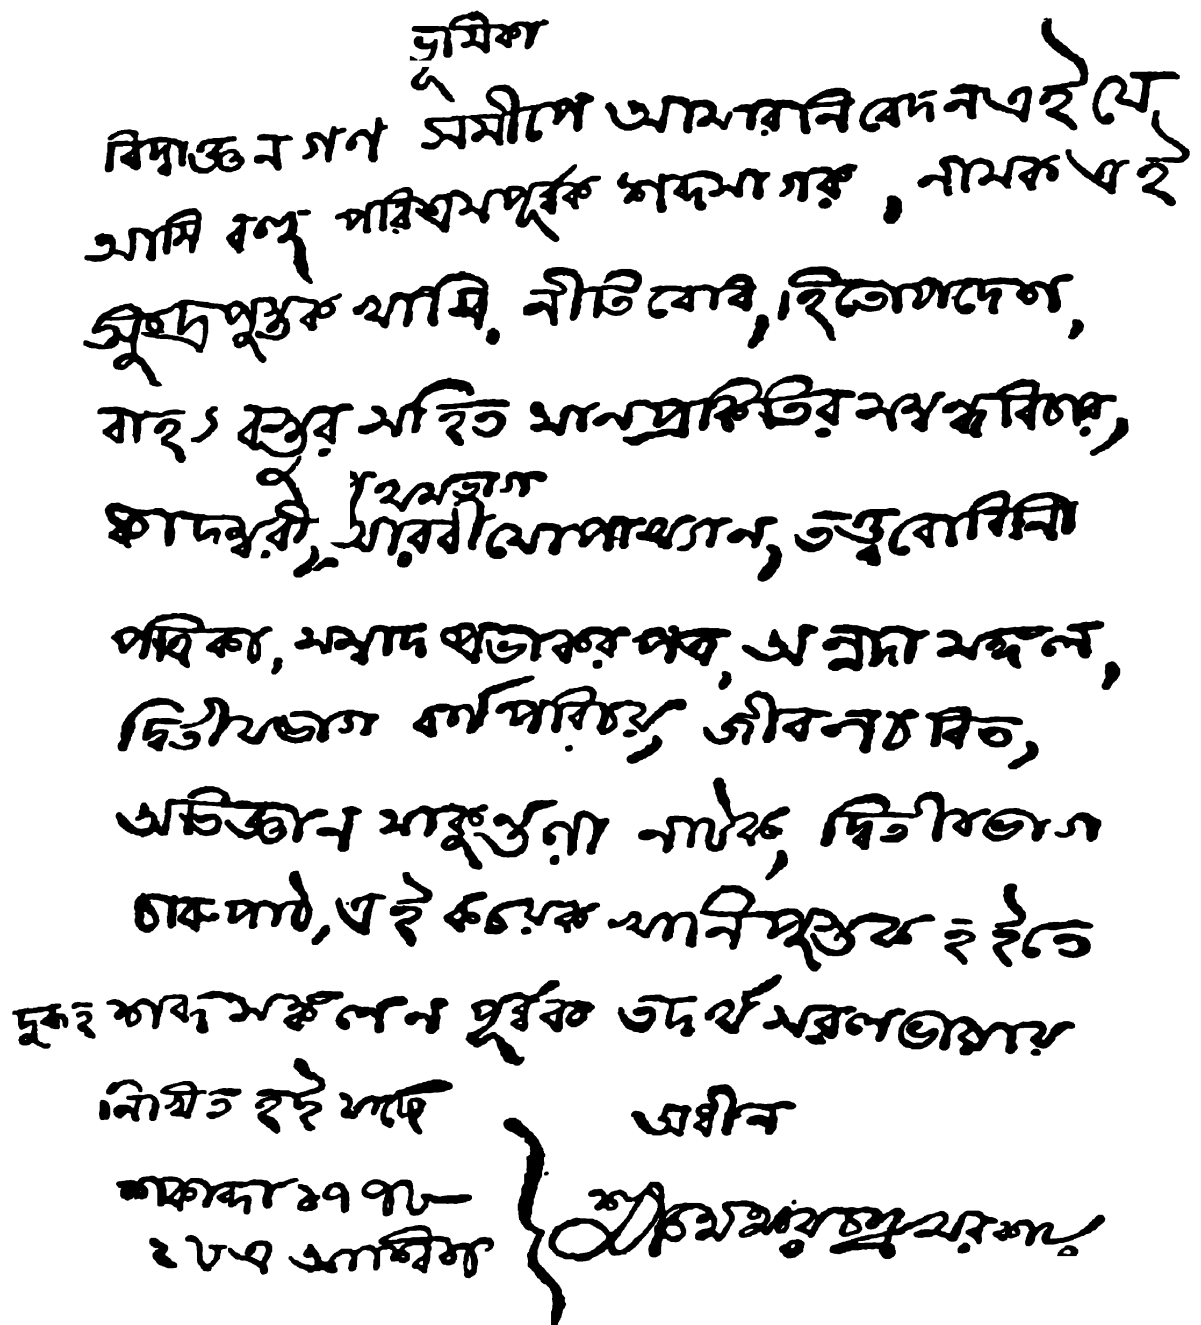 ভূমিকা
বিদ্বাজ্জনগণ সমীপে আমার নিবেদন এই যে,
আমি বহু পরিশ্রমপূর্ব্বক শব্দসাগর, নামক এই
ক্ষুদ্র পুস্তক খানি, নীতিবোধ, হিতোপদেশ,
বাহ্য বস্তুর সহিত মানবপ্রকৃতির সম্বন্ধ বিচার,
প্রথমভাগ
কাদম্বরী, আরবীয়োপাখ্যান, তত্ত্ববোধিনী
পত্রিকা, সম্বাদ প্রভাকর পত্র, অন্নদা মঙ্গল,
দ্বিতীয়ভাগ বর্ণপরিচয়, জীবনচরিত,
অভিজ্ঞান শকুন্তলা নাটক, দ্বিতীয়ভাগ
চারুপাঠ, এই কয়েক খানি পুস্তক হইতে
দুরূহ শব্দ সঙ্কলন পূর্ব্বক তদর্থ সরল ভাষায়
লিখিত হইয়াছে
অধীন
শকাব্দা ১৭৭৮
২৮এ আশ্বিন
শ্রী সরকার